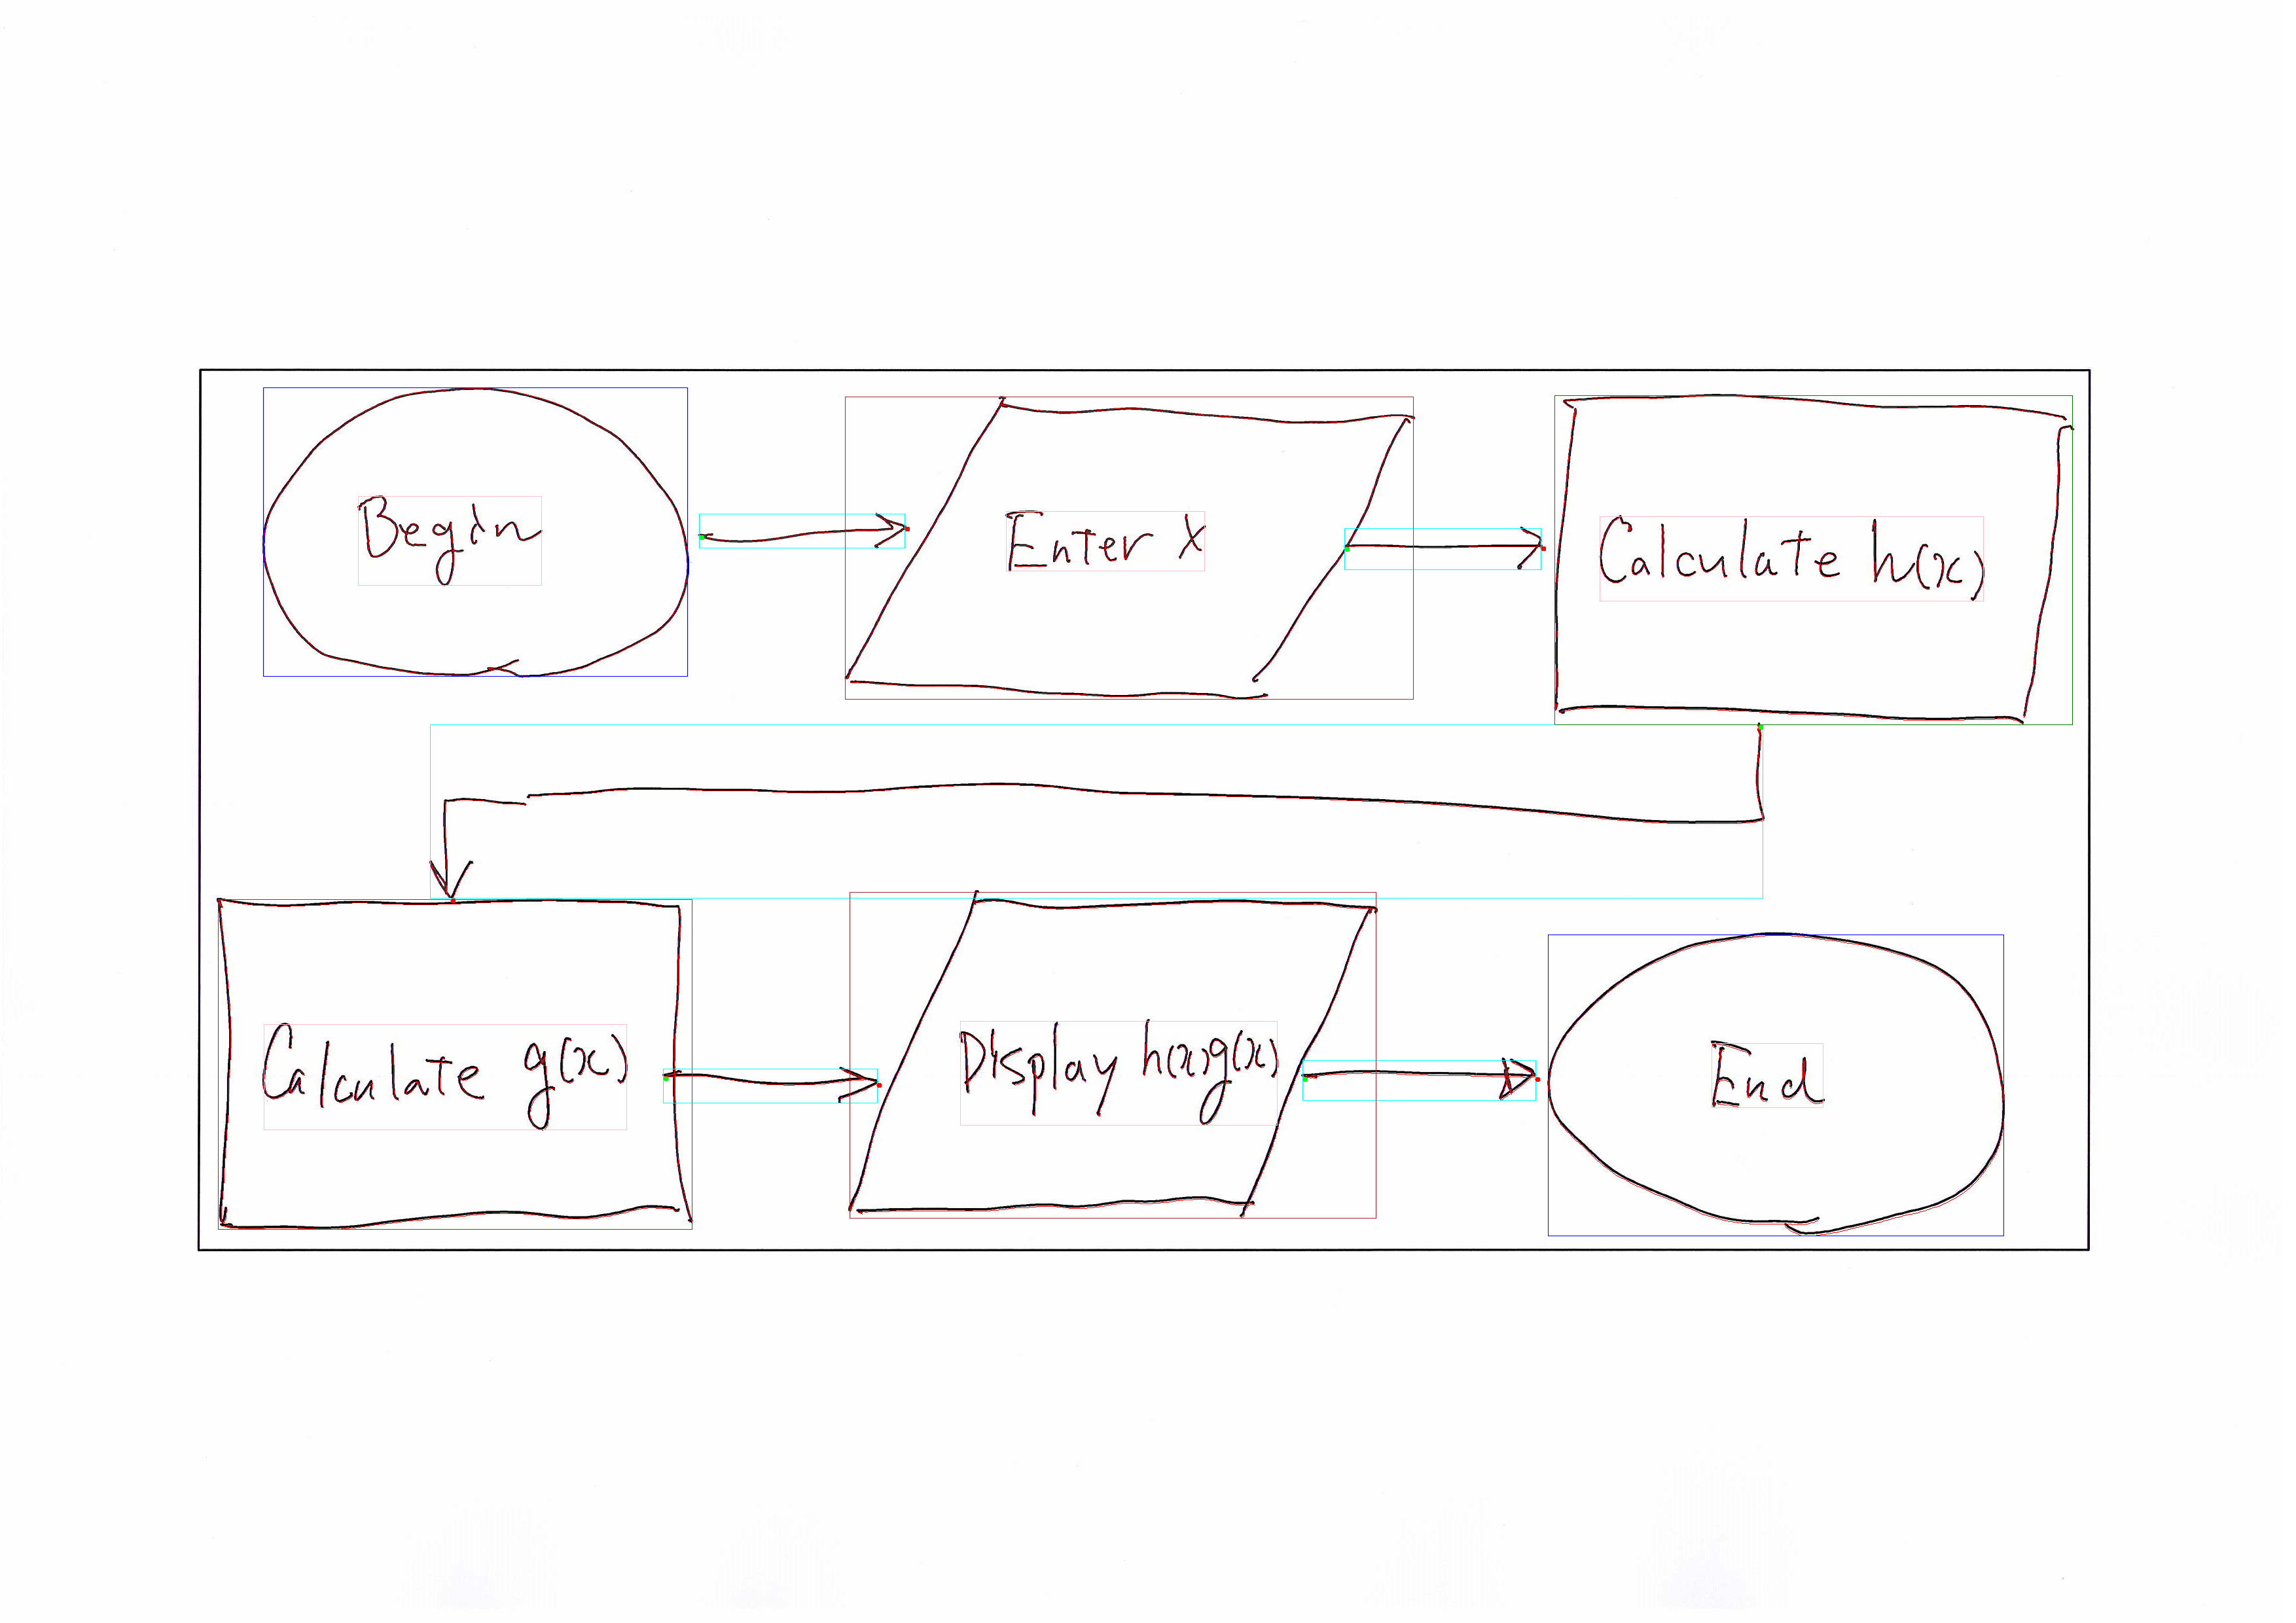 Begin
Enter X
Calculate h(x)
Calculate g(x)
Display h(x)g(x)
End